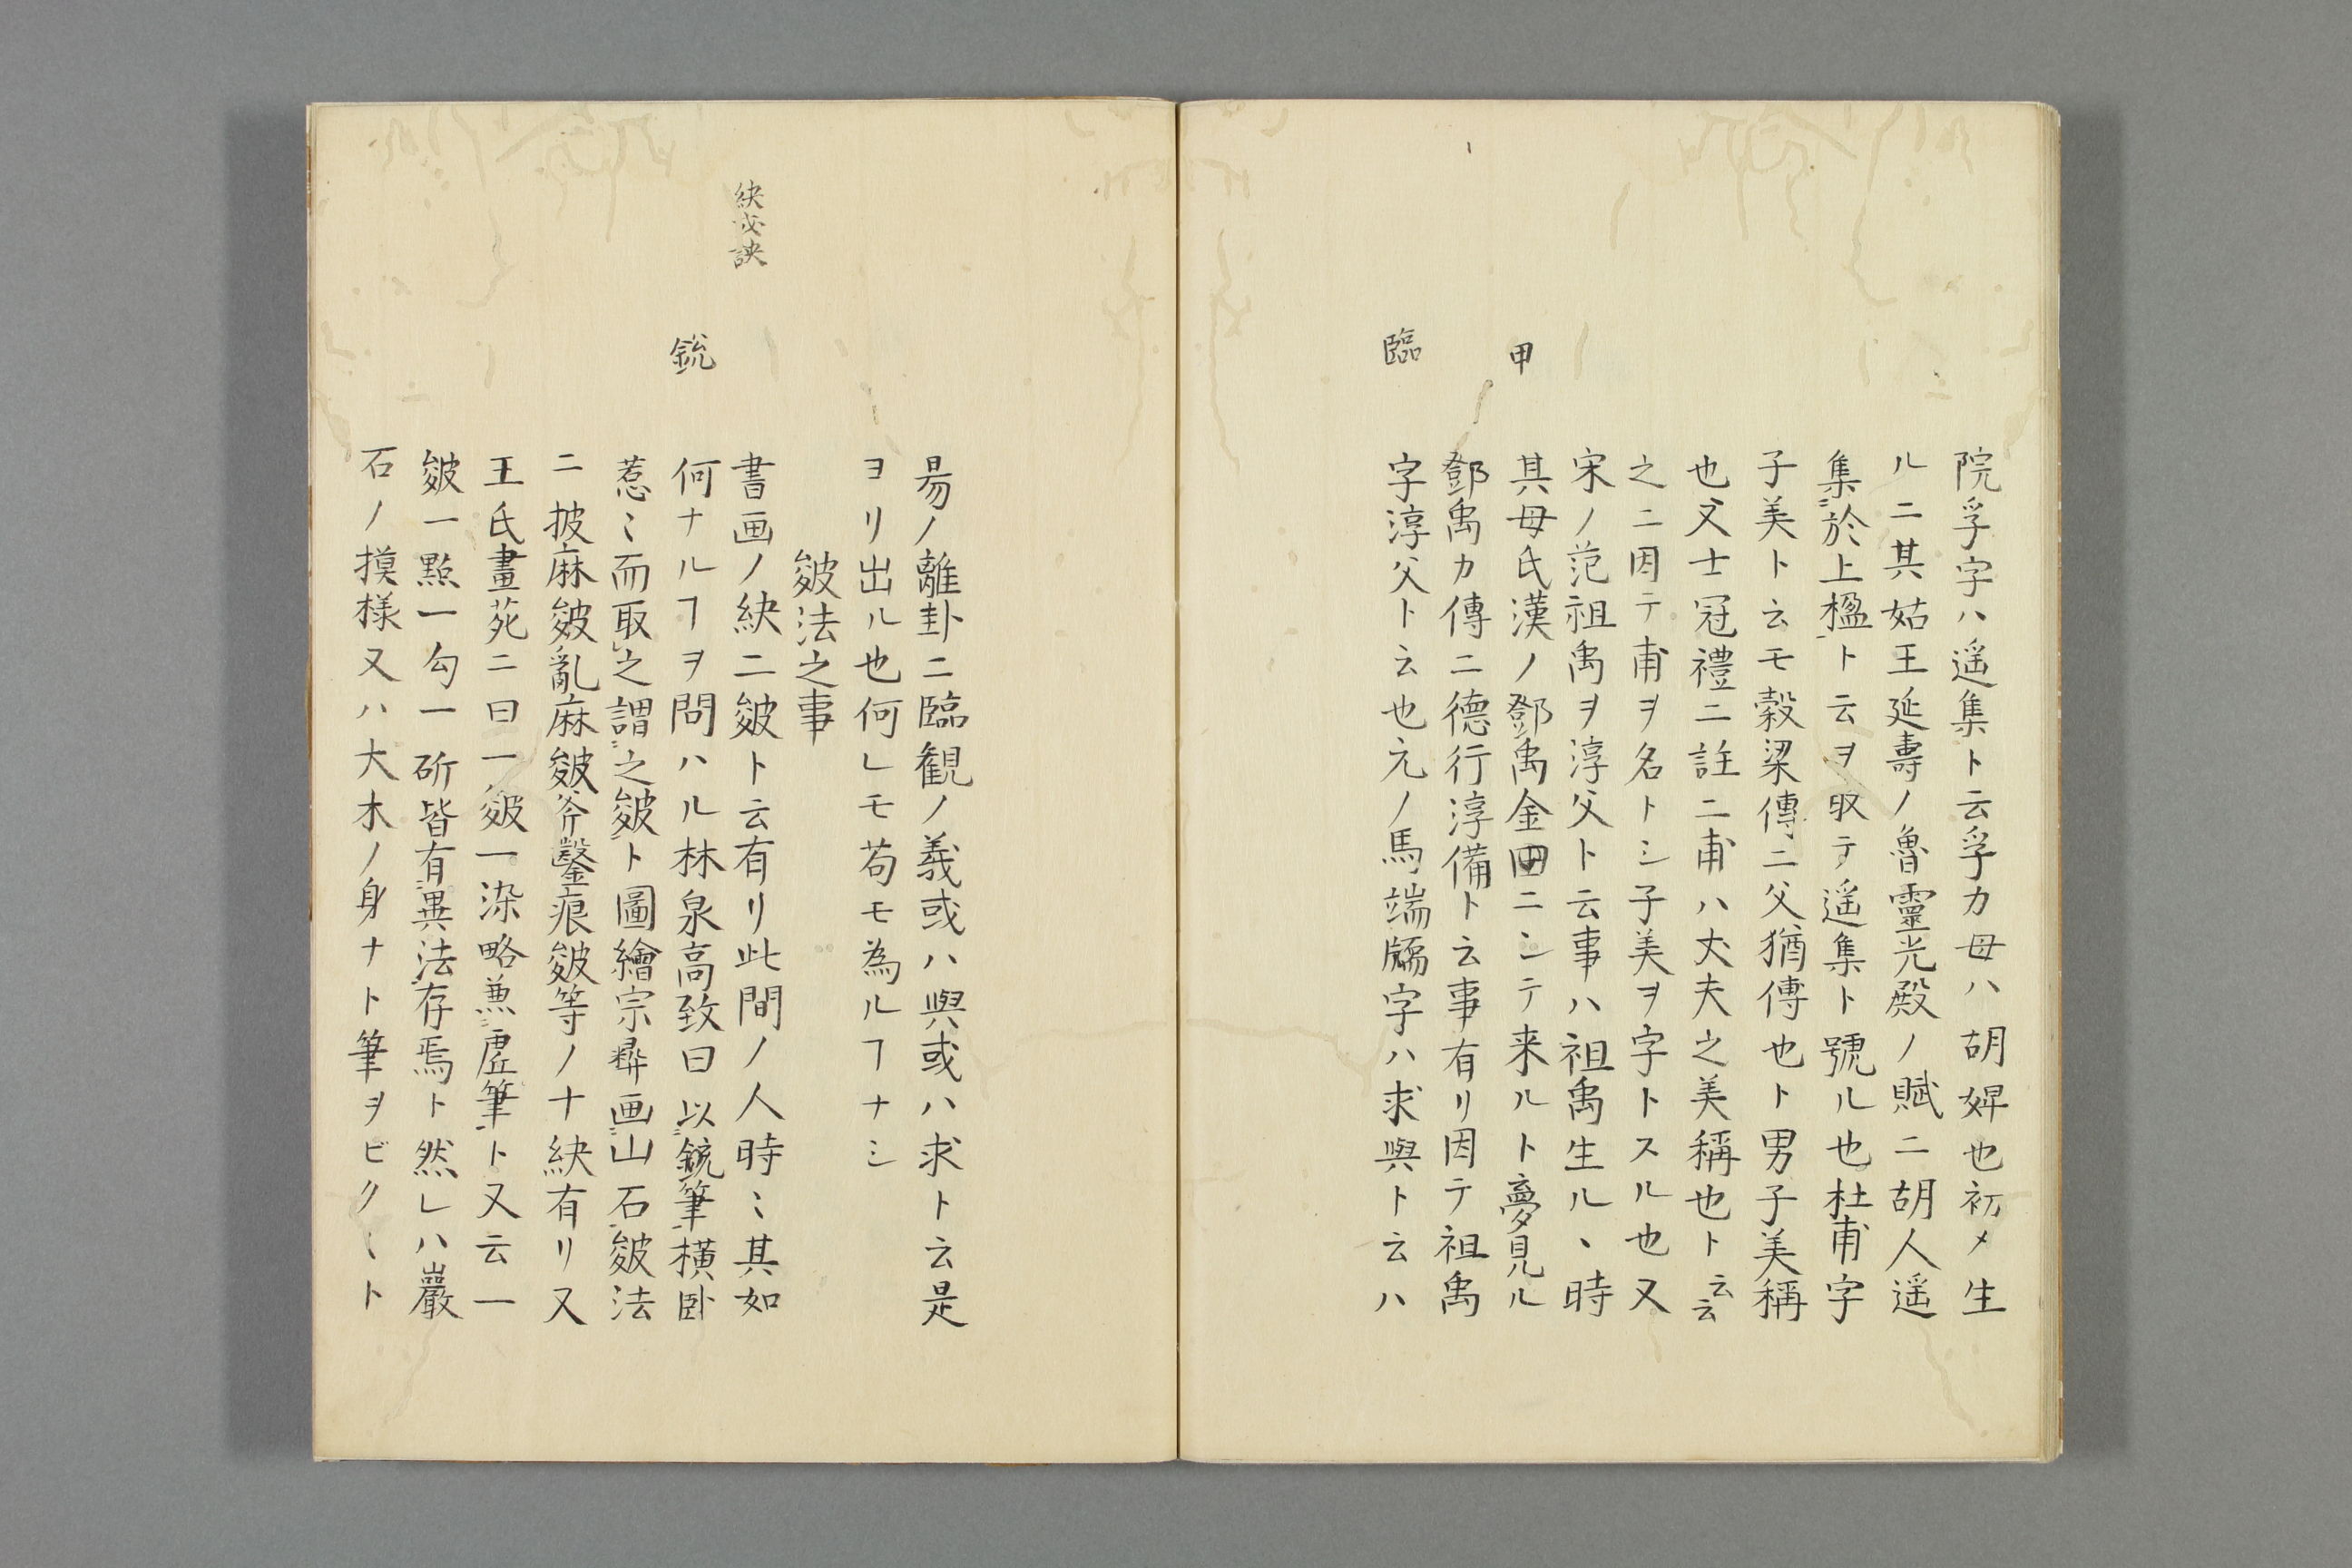 院孚字ハ遥集ト云孚カ母ハ胡婢也初メ生
ルニ其姑王延壽ノ魯靈光殿ノ賦ニ胡人遥
集於上楹ト云ヲ取テ遥集ト號ル也杜甫字
子美ト云モ穀梁傳ニ父猶傅也ト男子美稱
也又士冠禮ニ註ニ甫ハ丈夫之美稱也ト云云
之ニ因テ甫ヲ名トシ子美ヲ字トスル也又
宋ノ范祖禹ヲ淳父ト云事ハ祖禹生ル丶時
甲
其母氏漢ノ鄧禹金ニシテ来ルト夢見ル
鄧禹カ傳ニ德行淳備ト云事有リ因テ祖禹
臨
字淳父ト云也元ノ馬端字ハ求與ト云ハ
昜ノ離卦ニ臨観ノ義或ハ與或ハ求ト云是
ヨリ出ル也何レモ苟モ為ルヿナシ
皴法之事
紩或訣
書画ノ紩ニ皴ト云有リ此間ノ人時〻其如
銃
何ナルヿヲ問ハル林泉高致曰以銃筆横卧
惹〻而取之謂之皴ト圖繪宗彛画山石皴法
ニ披麻皴亂麻皴斧鑿痕皴等ノ十紩有リ又
王氏畫苑ニ曰一皴一染略兼虛筆ト又云一
皴一點一勾一斫皆有異法存焉ト然レハ巖
石ノ摸様又ハ大木ノ身ナト筆ヲビク〳〵ト